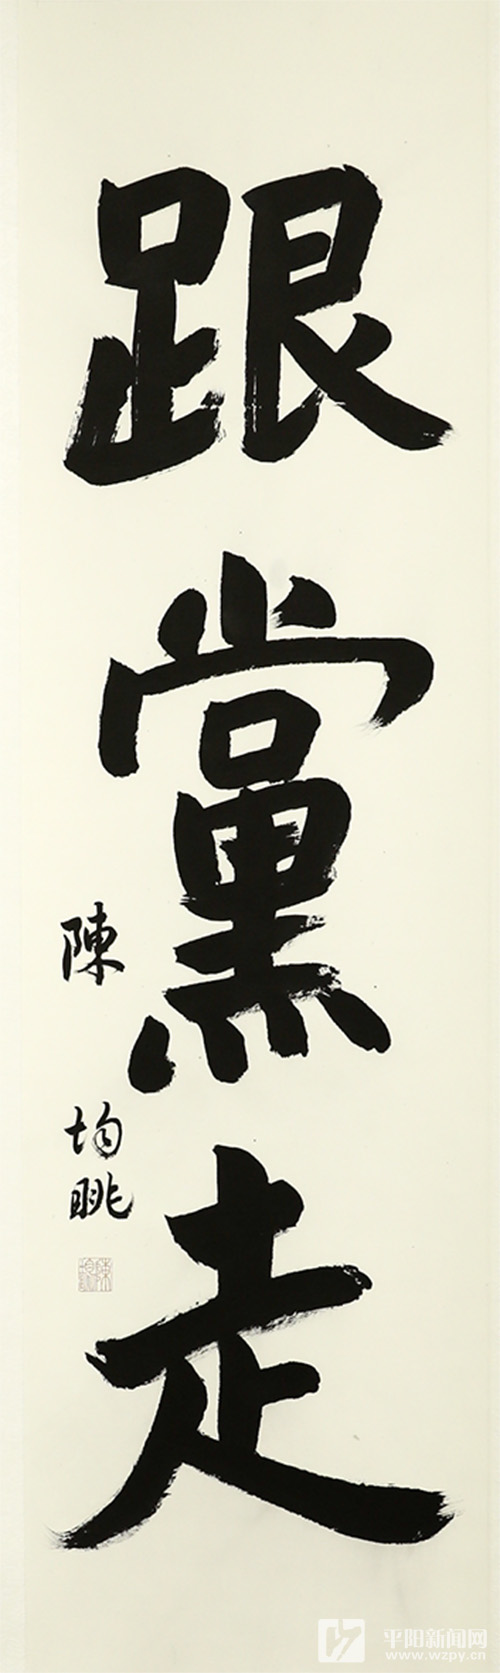 跟黨走
陳均眺
平阳新闻网
www.wzpy.cn